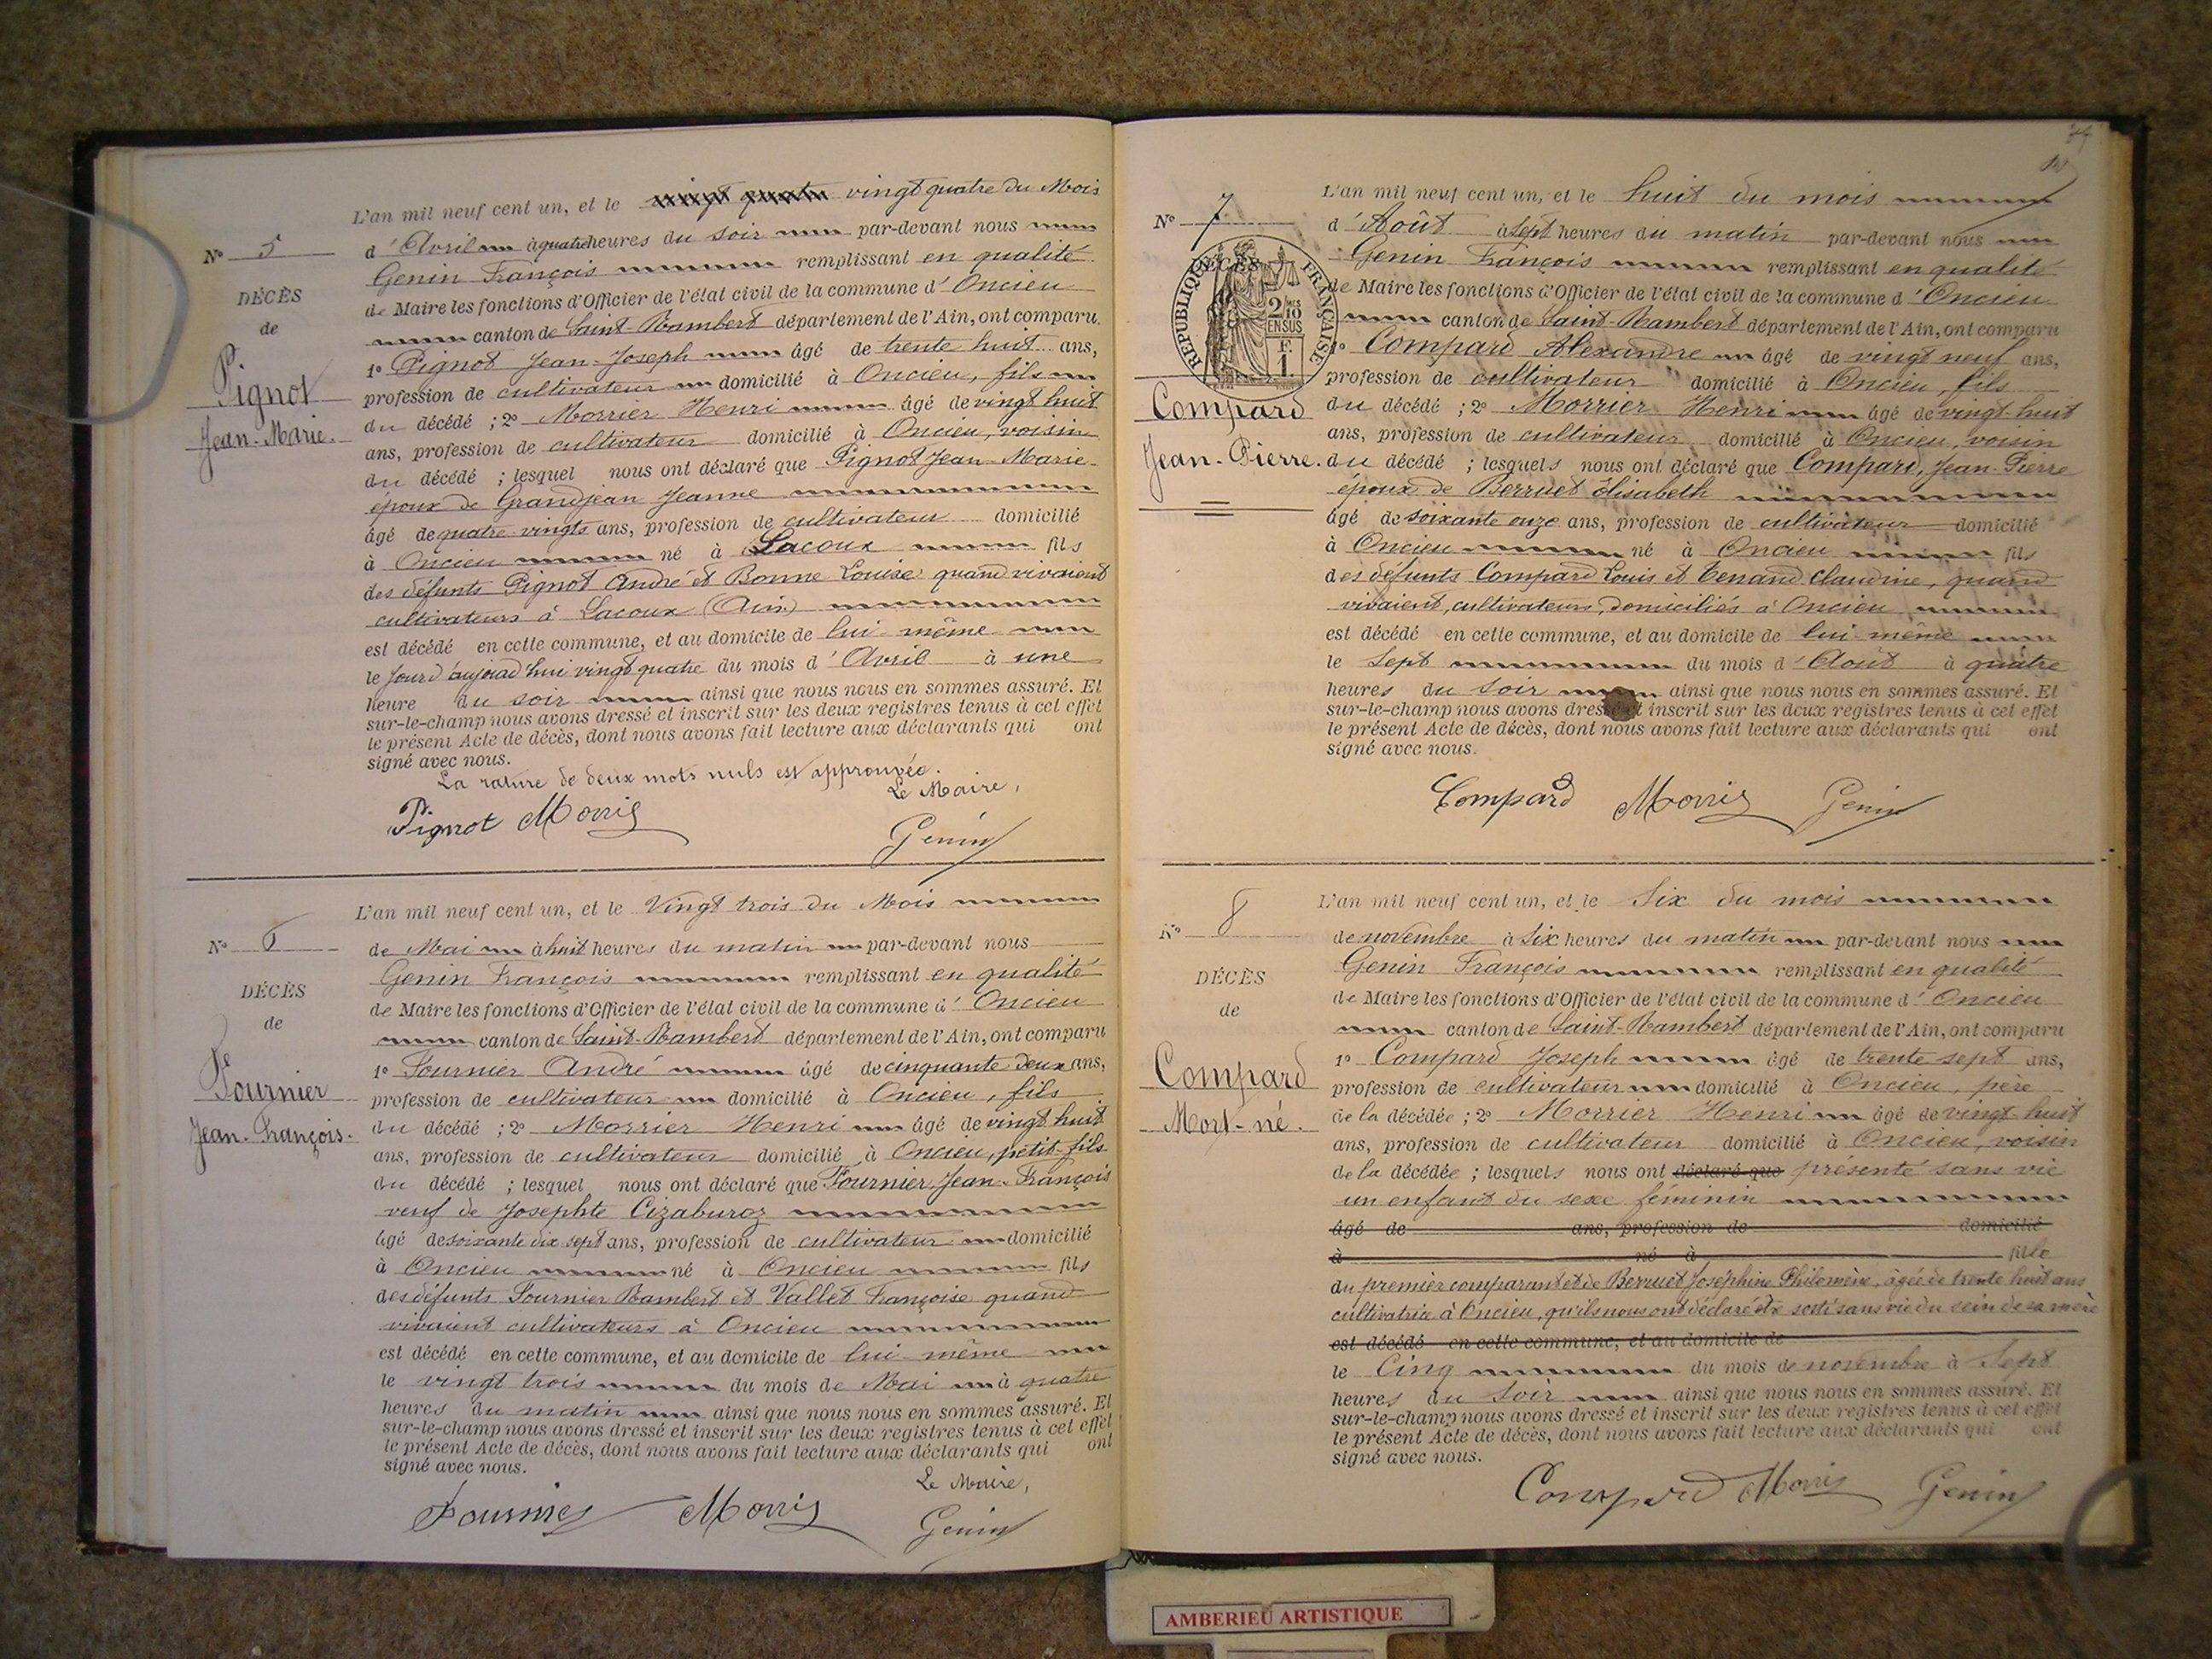 N° 5
DÉCÈS
de
Pignot
Jean-Marie.
L'an mil neuf cent un, et le vingt quatre vingt quatre du Mois
d'Avril à quatre heures du soir par-devant nous
Genin François remplissant en qualité
de Maire les fonctions d'Officier de l'état civil de la commune d'Oncieu
canton de Saint-Rambert département de l'Ain, ont comparu
1° Pignot Jean-Joseph âgé de trente huit ans,
profession de cultivateur domicilié à Oncieu, fils
du décédé ; 2° Morrier Henri âgé de vingt huit
ans, profession de cultivateur domicilié à Oncieu, voisin
du décédé ; lesquel nous ont déclaré que Pignot Jean-Marie
époux de Grandjean Jeanne
âgé de quatre vingts ans, profession de cultivateur domicilié
à Oncieu né à Lacoux fils
des défunts Pignot André et Bonne Louise quand vivaient
cultivateurs à Lacoux (Ain)
est décédé en cette commune, et au domicile de lui même
le jour d'aujourd'hui vingt quatre du mois d'Avril à une
heure du soir ainsi que nous nous en sommes assuré. Et
sur-le-champ nous avons dressé et inscrit sur les deux registres tenus à cet effet
le présent Acte de décès, dont nous avons fait lecture aux déclarants qui ont
signé avec nous.
La rature de deux mots nuls est approuvée.
Le Maire,
Pignot Morrier Genin
N° 6
DÉCÈS
de
Fournier
Jean-François.
L'an mil neuf cent un, et le Vingt trois du Mois
de Mai à huit heures du matin par-devant nous
Genin François remplissant en qualité
de Maire les fonctions d'Officier de l'état civil de la commune d'Oncieu
canton de Saint-Rambert département de l'Ain, ont comparu
1° Fournier André âgé de cinquante deux ans,
profession de cultivateur domicilié à Oncieu, fils
du décédé ; 2° Morrier Henri âgé de vingt huit
ans, profession de cultivateur domicilié à Oncieu, petit-fils
du décédé ; lesquel nous ont déclaré que Fournier Jean-François
veuf de Josephte Cizaburoz
âgé de soixante dix sept ans, profession de cultivateur domicilié
à Oncieu né à Oncieu fils
des défunts Fournier Rambert et Vallet Françoise quand
vivaient cultivateurs à Oncieu
est décédé en cette commune, et au domicile de lui même
le vingt trois du mois de Mai à quatre
heures du matin ainsi que nous nous en sommes assuré. Et
sur-le-champ nous avons dressé et inscrit sur les deux registres tenus à cet effet
le présent Acte de décès, dont nous avons fait lecture aux déclarants qui ont
signé avec nous.
Le Maire,
Fournier Morrier Genin
N° 7
RÉPUBLIQUE FRANÇAISE
2/10 EN SUS
F. 1.
Compard
Jean-Pierre.
L'an mil neuf cent un, et le huit du mois
d'Août à sept heures du matin par-devant nous
Genin François remplissant en qualité
de Maire les fonctions d'Officier de l'état civil de la commune d'Oncieu
canton de Saint-Rambert département de l'Ain, ont comparu
1° Compard Alexandre âgé de vingt neuf ans,
profession de cultivateur domicilié à Oncieu, fils
du décédé ; 2° Morrier Henri âgé de vingt-huit
ans, profession de cultivateur domicilié à Oncieu, voisin
du décédé ; lesquels nous ont déclaré que Compard, Jean-Pierre
époux de Berruet Élisabeth
âgé de soixante onze ans, profession de cultivateur domicilié
à Oncieu né à Oncieu fils
des défunts Compard Louis et Tenand Claudine, quand
vivaient, cultivateurs, domiciliés à Oncieu
est décédé en cette commune, et au domicile de lui-même
le Sept du mois d'Août à quatre
heures du soir ainsi que nous nous en sommes assuré. Et
sur-le-champ nous avons dressé et inscrit sur les deux registres tenus à cet effet
le présent Acte de décès, dont nous avons fait lecture aux déclarants qui ont
signé avec nous.
Compard Morrier Genin
N° 8
DÉCÈS
de
Compard
Mort-né.
L'an mil neuf cent un, et le Six du mois
de novembre à six heures du matin par-devant nous
Genin François remplissant en qualité
de Maire les fonctions d'Officier de l'état civil de la commune d'Oncieu
canton de Saint-Rambert département de l'Ain, ont comparu
1° Compard Joseph âgé de trente sept ans,
profession de cultivateur domicilié à Oncieu, père
de la décédée ; 2° Morrier Henri âgé de vingt huit
ans, profession de cultivateur domicilié à Oncieu, voisin
de la décédée ; lesquels nous ont déclaré que présenté sans vie
un enfant du sexe féminin
âgé de ans, profession de domicilié
à né à fille
du premier comparant et de Berruet Joséphine Philomène, âgée de trente huit ans
cultivatrice à Oncieu, qu'ils nous ont déclaré être sorti sans vie du sein de sa mère
est décédé en cette commune, et au domicile de
le Cinq du mois de novembre à Sept
heures du soir ainsi que nous nous en sommes assuré. Et
sur-le-champ nous avons dressé et inscrit sur les deux registres tenus à cet effet
le présent Acte de décès, dont nous avons fait lecture aux déclarants qui ont
signé avec nous.
Compard Morrier Genin
AMBERIEU ARTISTIQUE